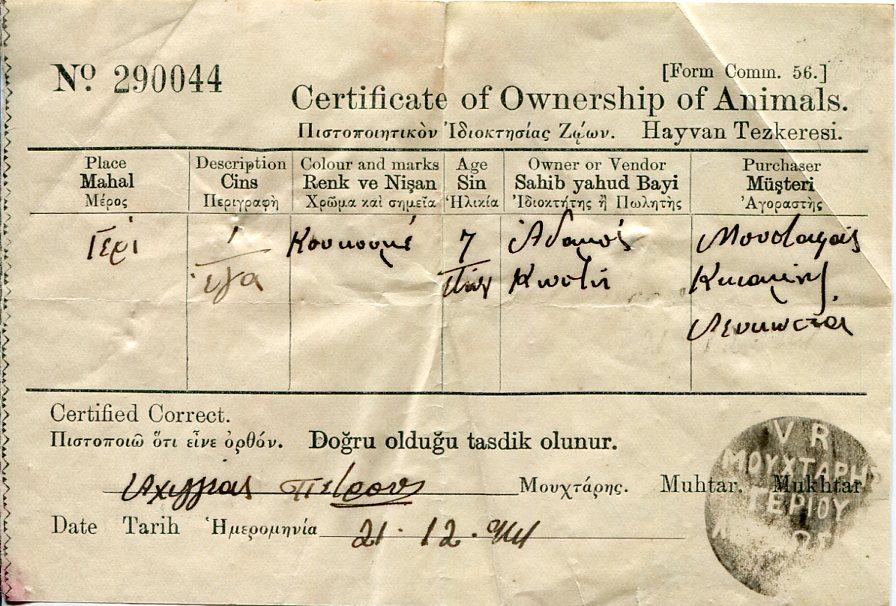 Nº 290044
[Form Comm. 56.]
Certificate of Ownership of Animals.
Πιστοποιητικὸν Ἰδιοκτησίας Ζῴων. Hayvan Tezkeresi.
Place Description Colour and marks Age Owner or Vendor Purchaser
Mahal Cins Renk ve Nişan Sin Sahib yahud Bayi Müşteri
Μέρος Περιγραφὴ Χρῶμα καὶ σημεῖα Ἡλικία Ἰδιοκτήτης ἢ Πωλητὴς Ἀγοραστὴς
Γέρι 1 7 Μουσταφᾶς
Κωστή
Λευκωσία
Certified Correct.
Πιστοποιῶ ὅτι εἶνε ὀρθόν. Doğru olduğu tasdik olunur.
Πέτρου Μουχτάρης. Muhtar. Mukhtar
Date Tarih Ἡμερομηνία 21.12.944
V R
ΜΟΥΧΤΑΡΗΣ
ΓΕΡΙΟΥ